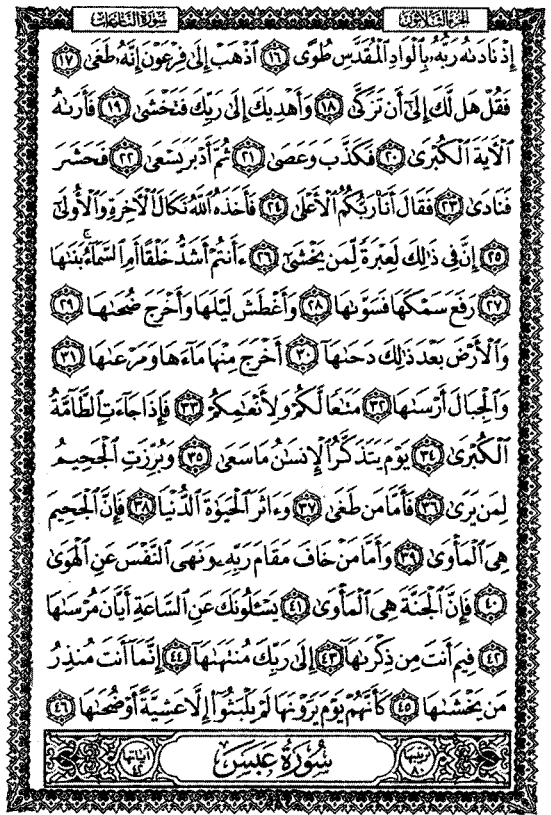 الجزء الثلاثون سورة النازعات
إِذْ نَادَىٰهُ رَبُّهُۥ بِٱلْوَادِ ٱلْمُقَدَّسِ طُوًى ١٦ ٱذْهَبْ إِلَىٰ فِرْعَوْنَ إِنَّهُۥ طَغَىٰ ١٧
فَقُلْ هَل لَّكَ إِلَىٰٓ أَن تَزَكَّىٰ ١٨ وَأَهْدِيَكَ إِلَىٰ رَبِّكَ فَتَخْشَىٰ ١٩ فَأَرَىٰهُ
ٱلْءَايَةَ ٱلْكُبْرَىٰ ٢٠ فَكَذَّبَ وَعَصَىٰ ٢١ ثُمَّ أَدْبَرَ يَسْعَىٰ ٢٢ فَحَشَرَ
فَنَادَىٰ ٢٣ فَقَالَ أَنَا۠ رَبُّكُمُ ٱلْأَعْلَىٰ ٢٤ فَأَخَذَهُ ٱللَّهُ نَكَالَ ٱلْءَاخِرَةِ وَٱلْأُولَىٰٓ
٢٥ إِنَّ فِى ذَٰلِكَ لَعِبْرَةً لِّمَن يَخْشَىٰٓ ٢٦ ءَأَنتُمْ أَشَدُّ خَلْقًا أَمِ ٱلسَّمَآءُ ۚ بَنَىٰهَا
٢٧ رَفَعَ سَمْكَهَا فَسَوَّىٰهَا ٢٨ وَأَغْطَشَ لَيْلَهَا وَأَخْرَجَ ضُحَىٰهَا ٢٩
وَٱلْأَرْضَ بَعْدَ ذَٰلِكَ دَحَىٰهَآ ٣٠ أَخْرَجَ مِنْهَا مَآءَهَا وَمَرْعَىٰهَا ٣١
وَٱلْجِبَالَ أَرْسَىٰهَا ٣٢ مَتَٰعًا لَّكُمْ وَلِأَنْعَٰمِكُمْ ٣٣ فَإِذَا جَآءَتِ ٱلطَّآمَّةُ
ٱلْكُبْرَىٰ ٣٤ يَوْمَ يَتَذَكَّرُ ٱلْإِنسَٰنُ مَا سَعَىٰ ٣٥ وَبُرِّزَتِ ٱلْجَحِيمُ
لِمَن يَرَىٰ ٣٦ فَأَمَّا مَن طَغَىٰ ٣٧ وَءَاثَرَ ٱلْحَيَوٰةَ ٱلدُّنْيَا ٣٨ فَإِنَّ ٱلْجَحِيمَ
هِىَ ٱلْمَأْوَىٰ ٣٩ وَأَمَّا مَنْ خَافَ مَقَامَ رَبِّهِۦ وَنَهَى ٱلنَّفْسَ عَنِ ٱلْهَوَىٰ
٤٠ فَإِنَّ ٱلْجَنَّةَ هِىَ ٱلْمَأْوَىٰ ٤١ يَسْـَٔلُونَكَ عَنِ ٱلسَّاعَةِ أَيَّانَ مُرْسَىٰهَا
٤٢ فِيمَ أَنتَ مِن ذِكْرَىٰهَآ ٤٣ إِلَىٰ رَبِّكَ مُنتَهَىٰهَآ ٤٤ إِنَّمَآ أَنتَ مُنذِرُ
مَن يَخْشَىٰهَا ٤٥ كَأَنَّهُمْ يَوْمَ يَرَوْنَهَا لَمْ يَلْبَثُوٓا۟ إِلَّا عَشِيَّةً أَوْ ضُحَىٰهَا ٤٦
ترتيبها ٨٠ سُورَةُ عَبَسَ آياتها ٤٢